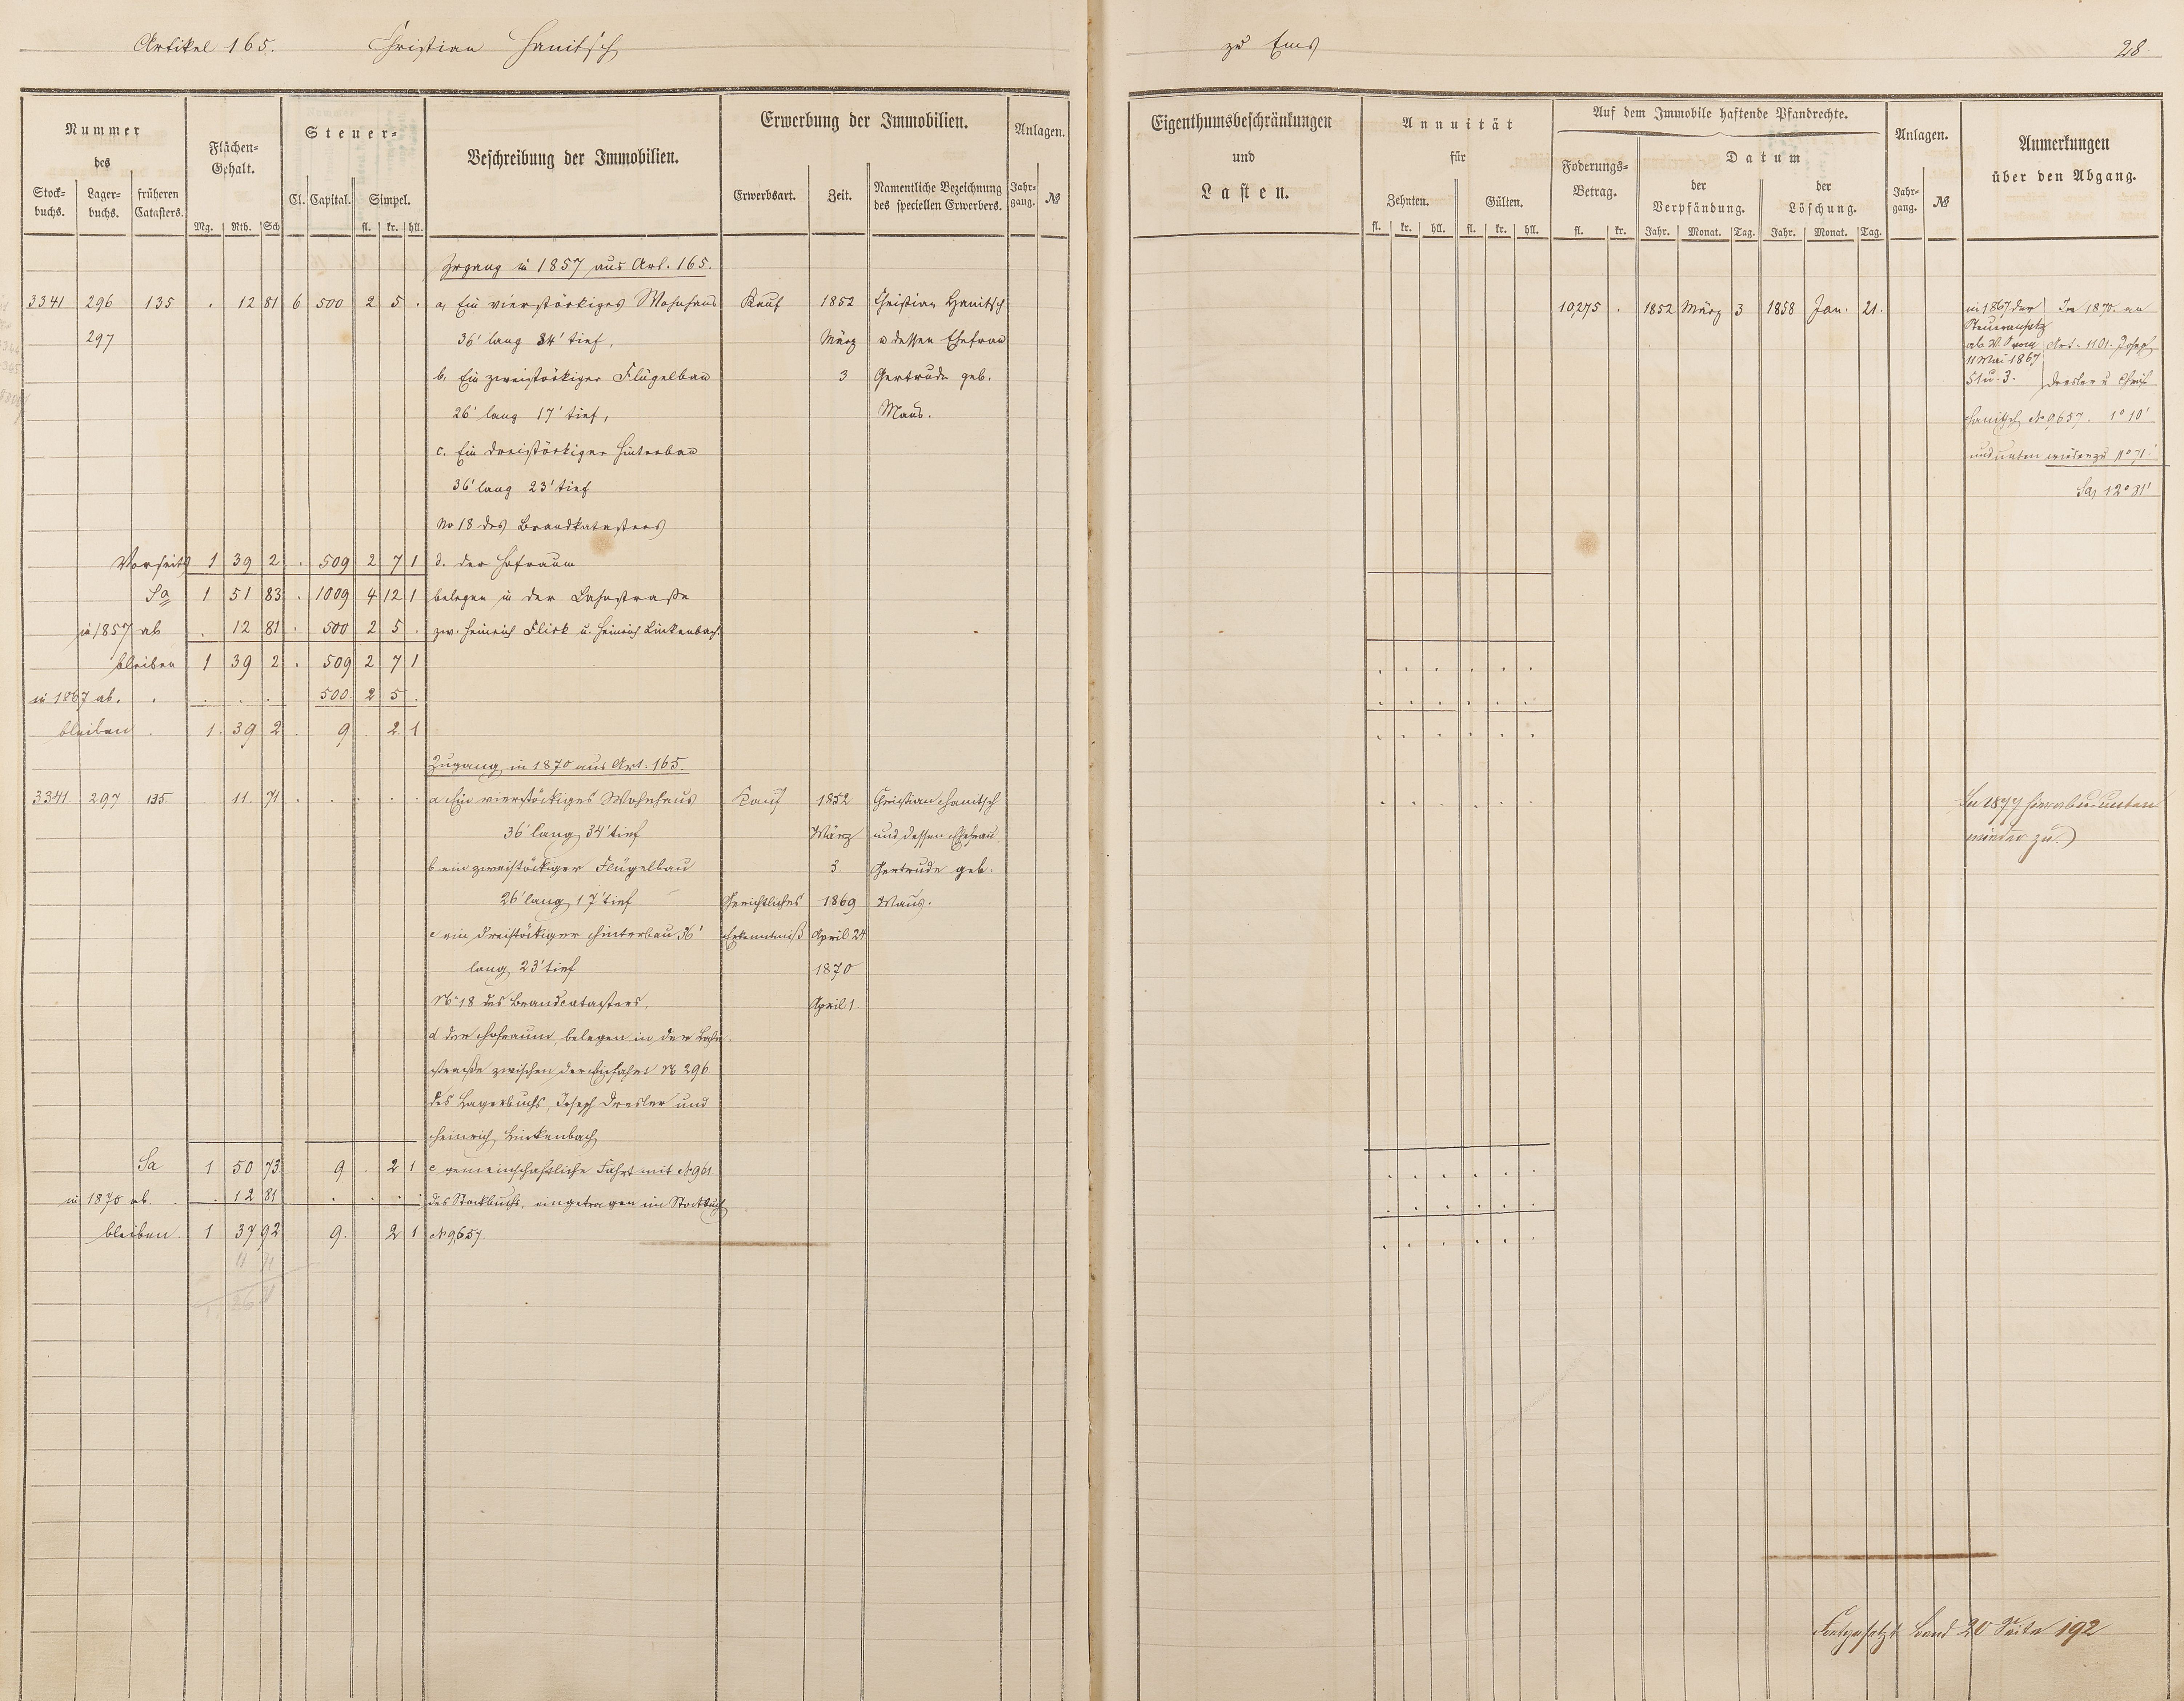 Artikel 165. Christian Hanitsch zu Ems 28
Nummer des
Stock- buchs. Lager- buchs. früheren Catasters.
Flächen- Gehalt.
Mg. Rth. Sch
Steuer-
Cl. Capital. Simpel.
fl. kr. hll.
Beschreibung der Immobilien.
Erwerbung der Immobilien.
Erwerbsart. Zeit. Namentliche Bezeichnung des speciellen Erwerbers.
Anlagen.
Jahr- gang. №
Eigenthumsbeschränkungen und Lasten.
Annuität für
Zehnten. Gülten.
fl. kr. hll. fl. kr. hll.
Auf dem Immobile haftende Pfandrechte.
Foderungs- Betrag.
fl. kr.
Datum
der Verpfändung. der Löschung.
Jahr. Monat. Tag. Jahr. Monat. Tag.
Anlagen.
Jahr- gang. №
Anmerkungen über den Abgang.
Zugang in 1857 aus Art. 165.
3341 296 135 . 12 81 6 500 2 5 . a, Ein vierstöckiges Wohnhaus Kauf 1852 Christian Hanitsch 10,275 . 1852 März 3 1858 Jan. 21.
297 36' lang 34' tief, März u dessen Ehefrau
b, Ein zweistöckiger Flügelbau 3 Gertrude geb.
26' lang 17' tief, Maus.
c. Ein dreistöckiger Hinterbau
36' lang 23' tief
No 18 des Brandkatasters
Vorseite 1 39 2 . 509 2 7 1 d. der Hofraum
Sa 1 51 83 . 1009 4 12 1 belegen in der Lahnstraße
in 1857 ab . 12 81 . 500 2 5 . zw. Heinrich Flick u. Heinrich Linkenbach.
bleiben 1 39 2 . 509 2 7 1
in 1867 ab. . . . . 500 2 5 .
bleiben . 1. 39 2 . 9 . 2 1
in 1867 der In 1870 an
Steueransatz
ab Art. 1101. Joseph
11 Mai 1867
Dresler u Christ
Hanitsch No 9657. 1° 10'
und unten wieder zu 11° 71'
Sa 12° 81'
Zugang in 1870 aus Art. 165.
3341 297 135. 11. 71 . . . . . a Ein vierstöckiges Wohnhaus Kauf 1852 Christian Hanitsch In 1877 hier ab u. unten
36' lang 34' tief März und dessen Ehefrau wieder zu.
b ein zweistöckiger Flügelbau 3. Gertrude geb.
26' lang 17' tief Gerichtliches 1869 Maus.
c ein dreistöckiger Hinterbau 36' Erkenntniß April 24
lang 23' tief 1870
No 18 des Brandcatasters. April 1.
d der Hofraum, belegen in der Lahn-
straße zwischen der Einfahrt No 296
des Lagerbuchs, Joseph Dresler und
Heinrich Linkenbach
Sa 1 50 73 9 . 2 1 e gemeinschaftliche Fahrt mit No 961
in 1870 ab. . . 12 81 . . . . des Stockbuchs, eingetragen im Stockbuch
bleiben. 1 37 92 9. 2 1 No 9657.
11 71
Fortgesetzt Band 20 Seite 192